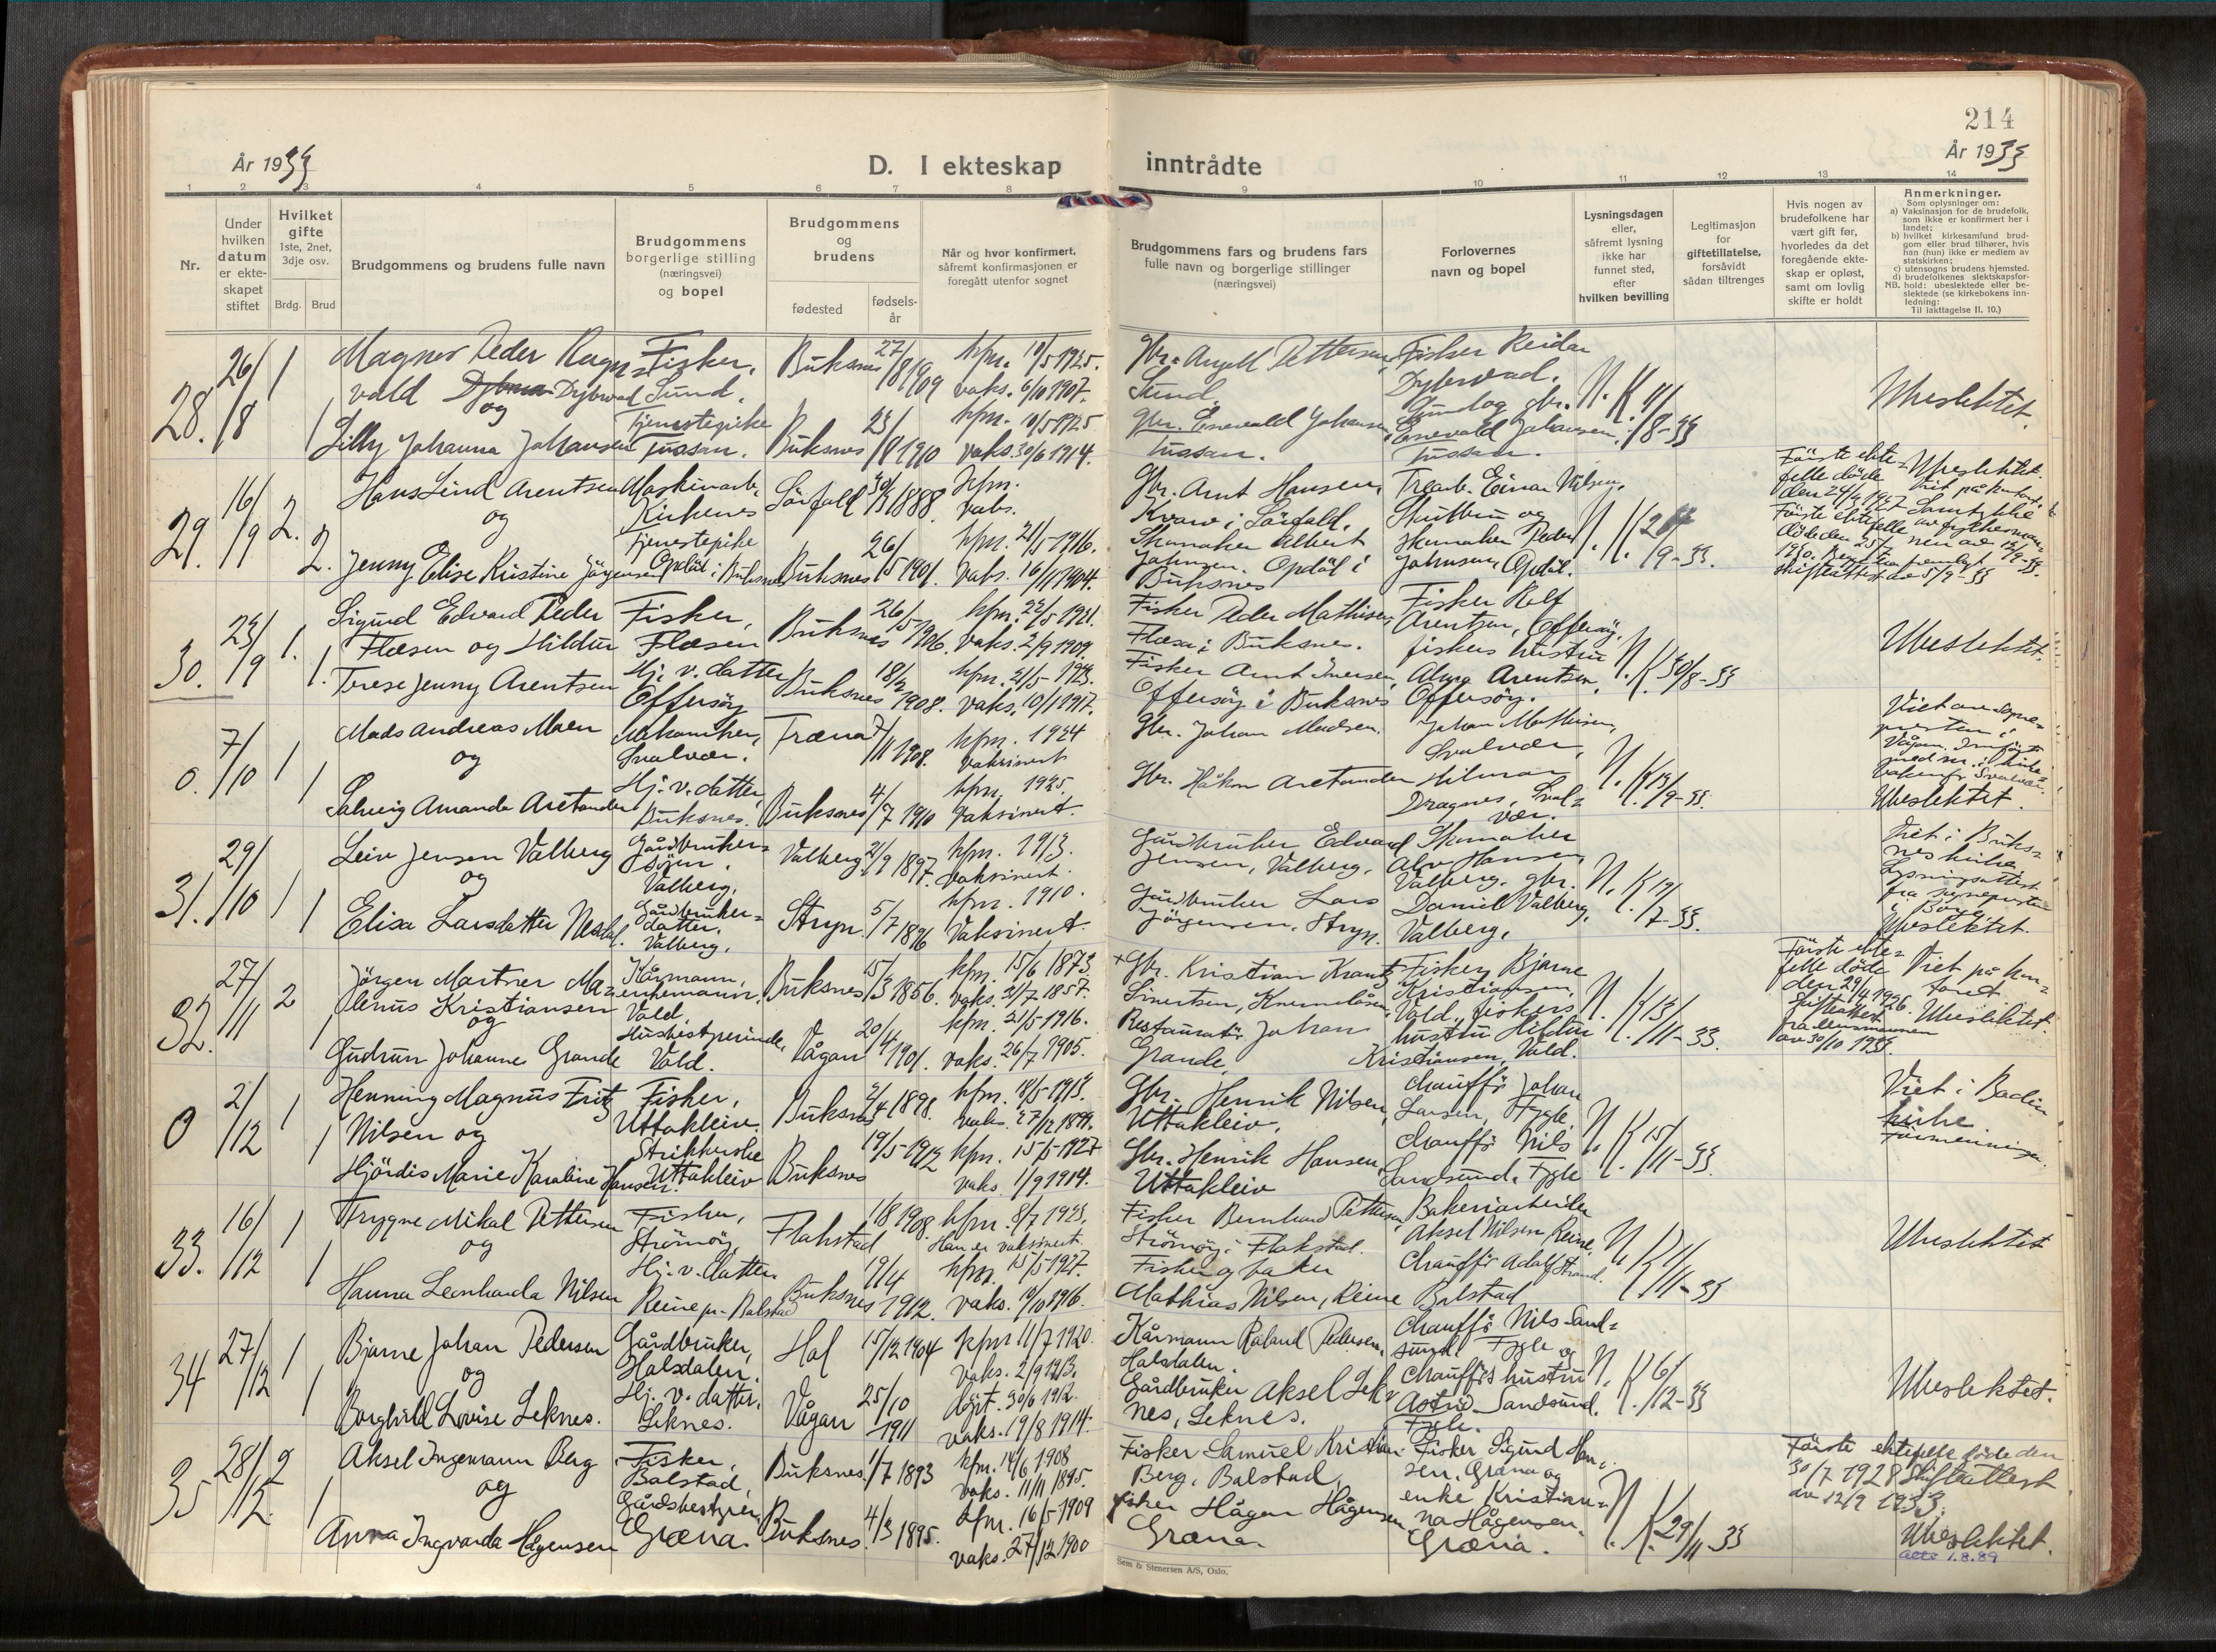 214
År 1933
D. I ekteskap
inntrådte
År 1933
1 2 3 4 5 6 7 8 9 10 11 12 13 14
Nr.
Under
hvilken
datum
er ekte-
skapet
stiftet
Hvilket
gifte
1ste, 2net,
3dje osv.
Brdg. Brud
Brudgommens og brudens fulle navn
Brudgommens
borgerlige stilling
(næringsvei)
og bopel
Brudgommens
og
brudens
fødested
fødsels-
år
Når og hvor konfirmert,
såfremt konfirmasjonen er
foregått utenfor sognet
Brudgommens fars og brudens fars
fulle navn og borgerlige stillinger
(næringsvei)
Forlovernes
navn og bopel
Lysningsdagen
eller,
såfremt lysning
ikke har
funnet sted,
efter
hvilken bevilling
Legitimasjon
for
giftetillatelse,
forsåvidt
sådan tiltrenges
Hvis nogen av
brudefolkene har
vært gift før,
hvorledes da det
foregående ekte-
skap er opløst,
samt om lovlig
skifte er holdt
Anmerkninger.
Som oplysninger om:
a) Vaksinasjon for de brudefolk,
som ikke er konfirmert her i
landet;
b) hvilket kirkesamfund brud-
gom eller brud tilhører, hvis
han (hun) ikke er medlem av
statskirken;
c) utensogns brudens hjemsted.
d) brudefolkenes slektskapsfor-
NB. hold: ubeslektede eller be-
slektede (se kirkebokens inn-
ledning:
Til iakttagelse II. 10.)
28. 26/8 1 1
Magner Peder Ragn-
vald Dybwad
og
Lilly Johanna Johansen
Fisker,
Sund.
Tjenestepike
Tussan.
Buksnes 27/8 1909
Buksnes 1910
kfm. 10/5 1925.
vaks. 6/10 1907.
kfm. 10/5 1925
vaks. 30/6 1914.
Gbr. Angell Pettersen,
Sund.
Gbr. Enevald Johansen,
Tussan.
Fisker Reidar
Dybwad,
Sund og gbr.
Enevald Johansen,
Tussan.
N. K. 11/8-33
Ubeslektet.
29. 16/9 2. 2.
Hans Lind Arentsen
og
Jenny Elise Kristine Jörgensen
Maskinarb.
Kirkenes
Tjenestepike
Opdöl i Buksnes
Sörfold 30/3 1888.
Buksnes 26/5 1901.
kfm.
vaks.
kfm. 21/5 1916.
vaks. 16/11 1904.
Gbr. Arnt Hansen,
Kvarv i Sörfold.
Skomaker Albert
Johnsen. Opdöl i
Buksnes
Trearb. Einar Nilsen,
og
skomaker Peder
Johnsen, Opdöl.
N. K. /9-33.
Förste ekte-
felle döde
den 24/4 1927
Förste ektefelle
döde den 25/7
1930.
skifteattest av 5/9-33
Ubeslektet.
Viet på kontoret.
Samtykke
30. 23/9 1. 1.
Sigurd Edvard Peder
Flæsen og Hildur
Terese Jenny Arentsen
Fisker,
Flæsen
Hj. v. datter
Offersöy
Buksnes 26/5 1906.
Buksnes 1908.
kfm. 22/5 1921.
vaks. 2/9 1909.
kfm. 21/5 1923.
vaks. 10/1 1917.
Fisker Peder Mathisen,
Flæsa i Buksnes.
Fisker Arnt Iversen,
Offersöy i Buksnes
Fisker Rolf
Arentsen, Offersöy,
fiskers hustru
Alma Arentsen,
Offersöy.
N. K. 30/8-33
Ubeslektet.
0. 7/10 1 1
Mads Andreas Moen
og
Solveig Amanda Arctander
Mekaniker,
Svolvær.
Hj. v. datter,
Buksnes.
Træna 7/11 1908.
Buksnes 4/7 1910
kfm. 1924
vaksinert
kfm. 1925.
Vaksinert.
Gbr. Johan Madsen.
Gbr. Håkon Arctander
Johan Mathisen,
Svolvær,
Hilmar
Dragnes, Svol-
vær.
N. K. 13/9-33.
Viet av sogne-
presten i
Vågan. Innfört
med nr. i kirke-
boken for Svolvær.
Ubeslektet.
31. 29/10 1 1
Leiv Jensen Valberg
og
Elisa Larsdatter Nesdal.
Gårdbruker-
sönn,
Valberg,
Gårdbruker-
datter,
Valberg,
Valberg 2/9 1897.
Stryn 5/7 1896
kfm. 1913.
Vaksinert.
kfm. 1910.
Vaksinert.
Gårdbruker Edvard
Jensen, Valberg.
Gårdbruker Lars
Jörgensen, Stryn.
Skomaker
Alv Hansen,
Valberg, gbr.
Daniel Valberg,
Valberg,
N. K. 19/7-33.
Viet i Buks-
nes kirke
Lysningsattest
fra sognepresten
i Borge.
Ubeslektet.
32. 27/11 2 1
Jörgen Martner Ma-
Kristiansen
og
Gudrun Johanne Grande
Kårmann,
enkemann,
Vold,
Husbestyrerinde,
Vold.
Buksnes 15/3 1856.
Vågan 20/4 1901.
kfm. 15/6 1873.
vaks. 21/7 1857.
kfm. 21/5 1916.
vaks. 26/7 1905.
Gbr. Kristian Krantz
Sivertsen,
Restauratör Johan
Grande,
Fisker Bjarne
Kristiansen,
Vold, fiskers
hustru Hildur
Kristiansen, Vold.
N. K. 13/11-33.
Förste ekte-
felle döde
den 29/4 1926.
Skifteattest
fra lensmannen
av 30/10 1933.
Viet på kon-
toret.
Ubeslektet.
0 2/12 1 1
Henning Magnus Fritz
Nilsen og
Hjördis Marie Karoline Hansen.
Fisker,
Uttakleiv.
Strikkerske
Uttakleiv
Buksnes 2/4 1898.
Buksnes 19/5-1912
kfm. 18/5-1913.
vaks. 27/12 1899.
kfm. 15/5-1927
vaks. 1/9 1914.
Gbr. Henrik Nilsen,
Uttakleiv,
Gbr. Henrik Hansen,
Uttakleiv
Chaufför Johan
Larsen, Fygle,
Chaufför Nils
Sandsund, Fygle
N. K. 15/11-33.
Viet i Bodin
kirke
33. 16/12 1 1
Trygve Mikal Pettersen
og
Hanna Leonharda Nilsen
Fisker,
Strömöy,
Hj. v. datter
Reine pr. Balstad
Flakstad 1/8 1908.
Buksnes 19/4 1912.
kfm. 8/7 1923,
Han er vaksinert.
kfm. 15/5-1927.
vaks. 10/10 1916.
Fisker Bernhard Pettersen,
Strömöy i Flakstad.
Fisker og baker
Mathias Nilsen, Reine
Bakeriarbeider
Aksel Nilsen, Reine,
Chaufför Adolf Strand.
Balstad
N. K. 11/11-33
Ubeslektet
34 27/12 1 1
Bjarne Johan Pedersen
og
Borghild Lovise Leknes.
Gårdbruker,
Halsdalen,
Hj. v. datter,
Leknes.
Hol 15/12 1904
Vågan 25/10 1911
kfm 11/7 1920.
vaks. 2/9 1913.
döpt. 30/6 1912.
vaks. 19/8 1914.
Kårmann Roland Pedersen,
Halsdalen.
Gårdbruker Aksel Lek-
nes, Leknes.
Chaufför Nils Sand-
sund, Fygle og
Chaufförs hustru
Astrid Sandsund.
Fygle.
N. K. 6/12-33
Ubeslektet.
35 28/12 2 1
Aksel Ingemann Berg
og
Anna Ingvarda Hågensen
Fisker,
Balstad,
Gårdsbestyrer,
Græna.
Buksnes. 1/7 1893
Buksnes. 4/3 1895.
kfm. 14/6 1908
vaks. 11/11 1895.
kfm. 16/5-1909
vaks. 27/12 1900
Fisker Samuel Kristian
Berg, Balstad,
fisker Hågen Hågensen
Græna.
Fisker Sigurd Han-
sen, Græna og
enke Kristian-
na Hågensen.
Græna.
N. K. 29/11-33
Förste ektefelle döde den
30/7 1928 Skifteattest
av 12/9 1933.
Ubeslektet.
1.8.89
Sem & Stenersen A/S, Oslo.